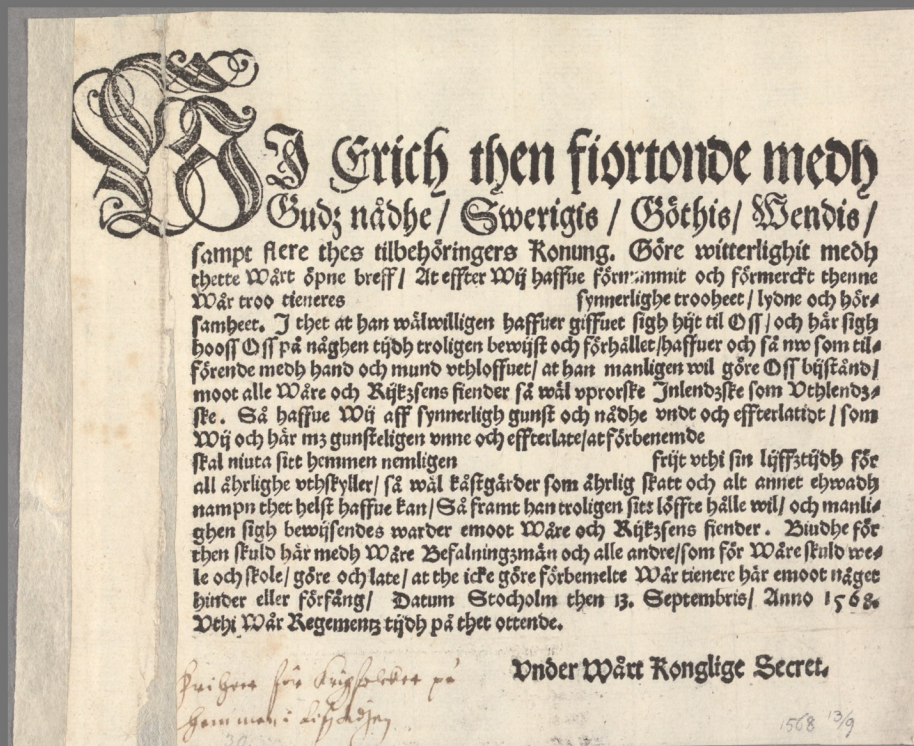 WJ Erich then fiortonde medh
Gudz nådhe / Swerigis / Göthis / Wendis /
sampt flere thes tilbehöringers Konung. Göre witterlighit medh
thette Wårt öpne breff / At effter Wij haffue förnummit och förmerckt thenne
Wår troo tieneres synnerlighe trooheet / lydne och hör⸗
samheet. J thet at han wälwilligen haffuer giffuet sigh hijt til Oss / och här sigh
hooss Oss på någhen tijdh troligen bewijst och förhållet / haffuer och så nw som til⸗
förende medh hand och mund vthloffuet / at han manligen wil göre Oss bijstånd /
moot alle Wåre och Rijkzsens fiender så wäl vprorske Jnlendzske som Vthlendz⸗
ske. Så haffue Wij aff synnerligh gunst och nådhe vndt och effterlatidt / som
Wij och här mz gunsteligen vnne och effterlate / at förbenemde
skal niuta sitt hemmen nemligen frijt vthi sin lijffztijdh för
all åhrlighe vthskyller / så wäl kåstgärder som åhrlig skatt och alt annet ehwadh
nampn thet helst haffue kan / Så framt han troligen sitt löffte hålle wil / och manli⸗
ghen sigh bewijsendes warder emoot Wåre och Rijkzsens fiender. Biudhe för
then skuld här medh Wåre Befalningzmän och alle andre / som för Wåre skuld we⸗
le och skole / göre och late / at the icke göre förbemelte Wår tienere här emoot något
hinder eller förfång / Datum Stocholm then 13. Septembris / Anno 1568.
Vthi Wår Regementz tijdh på thet ottende.
Vnder Wårt Konglige Secret.
Friheet för Krigsfolcket på
hemman i
1568 13/9